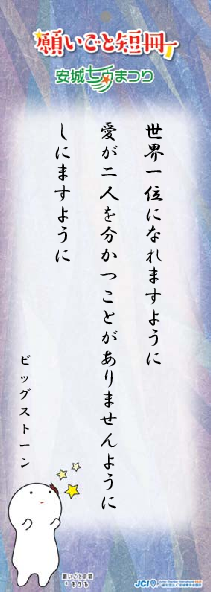 願いごと短冊
安城七夕まつり
世界一位になれますように
愛が二人を分かつことがありませんように
しにますように
ビッグストーン
願いごと短冊
JCI